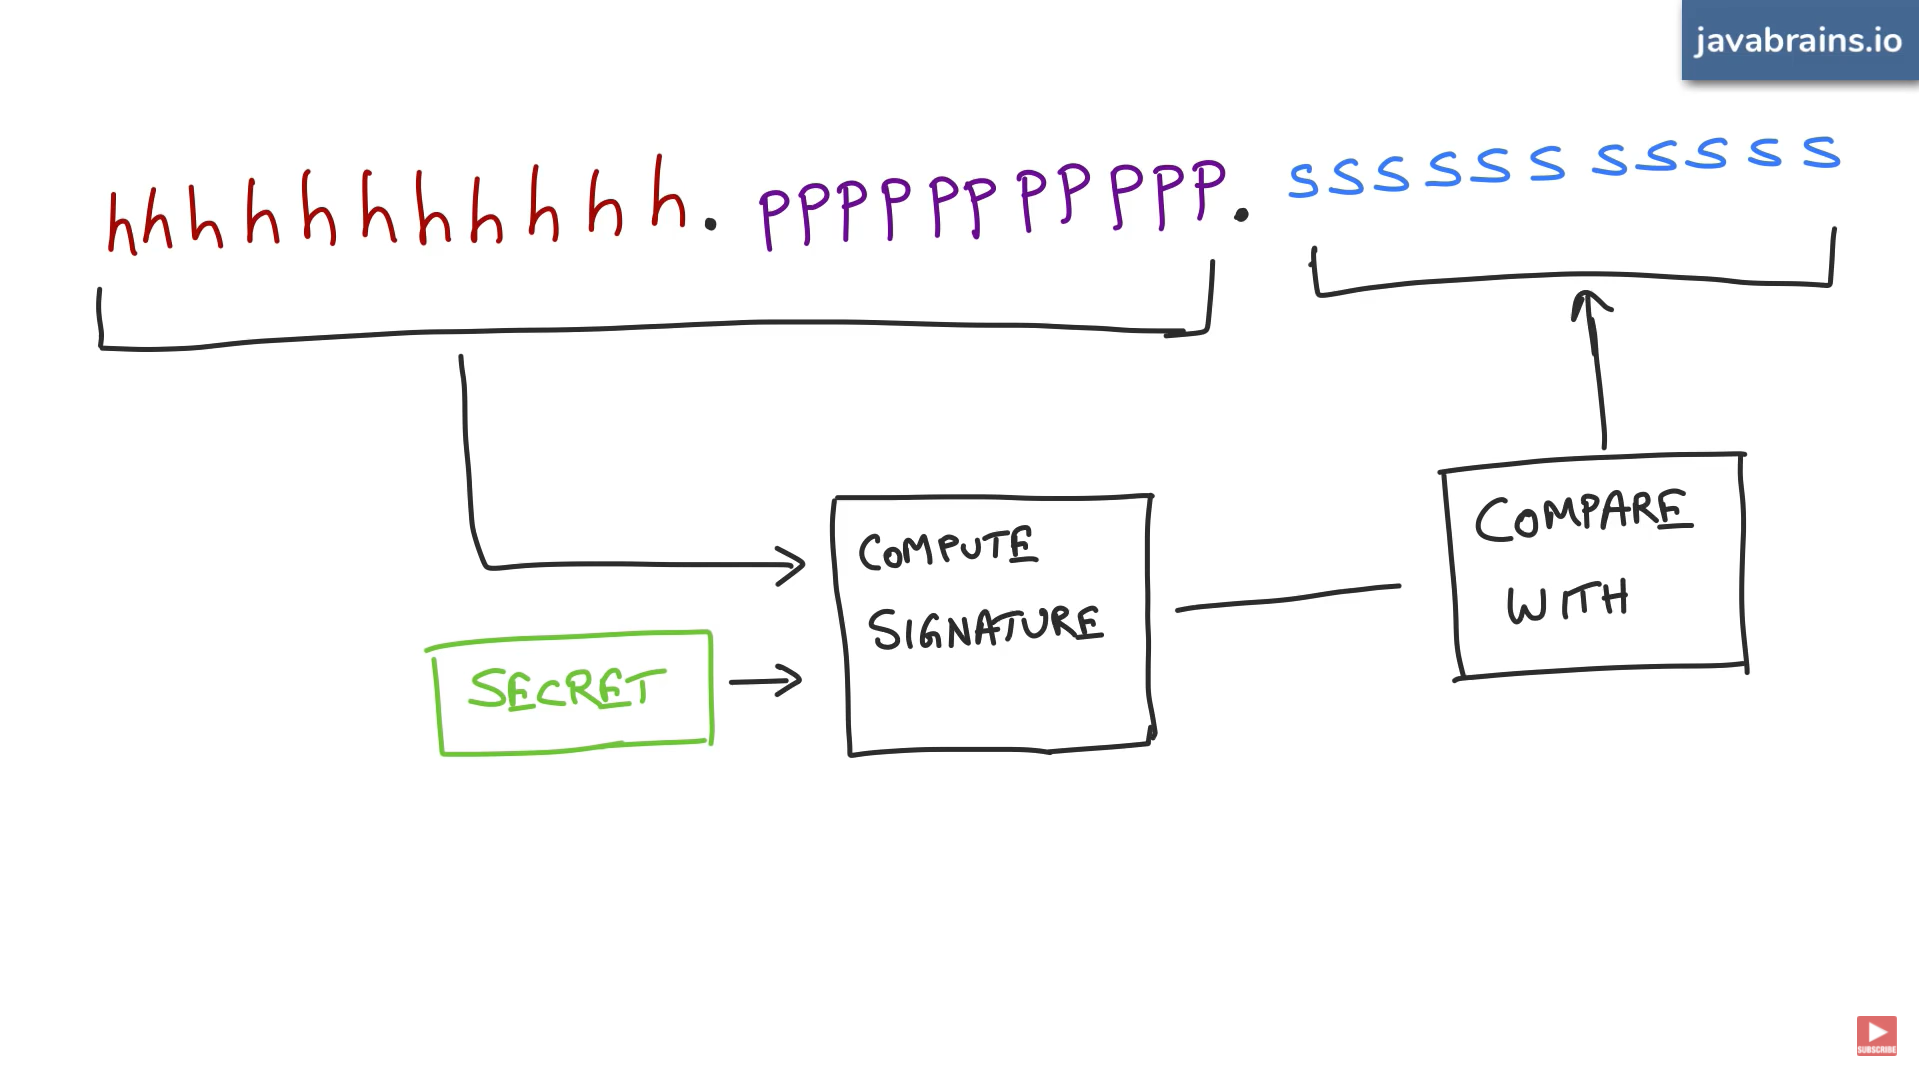 javabrains.io
hhhhhhhhhhh.pppppppppppp.sssssssssss
COMPUTE
SIGNATURE
SECRET
COMPARE
WITH
SUBSCRIBE